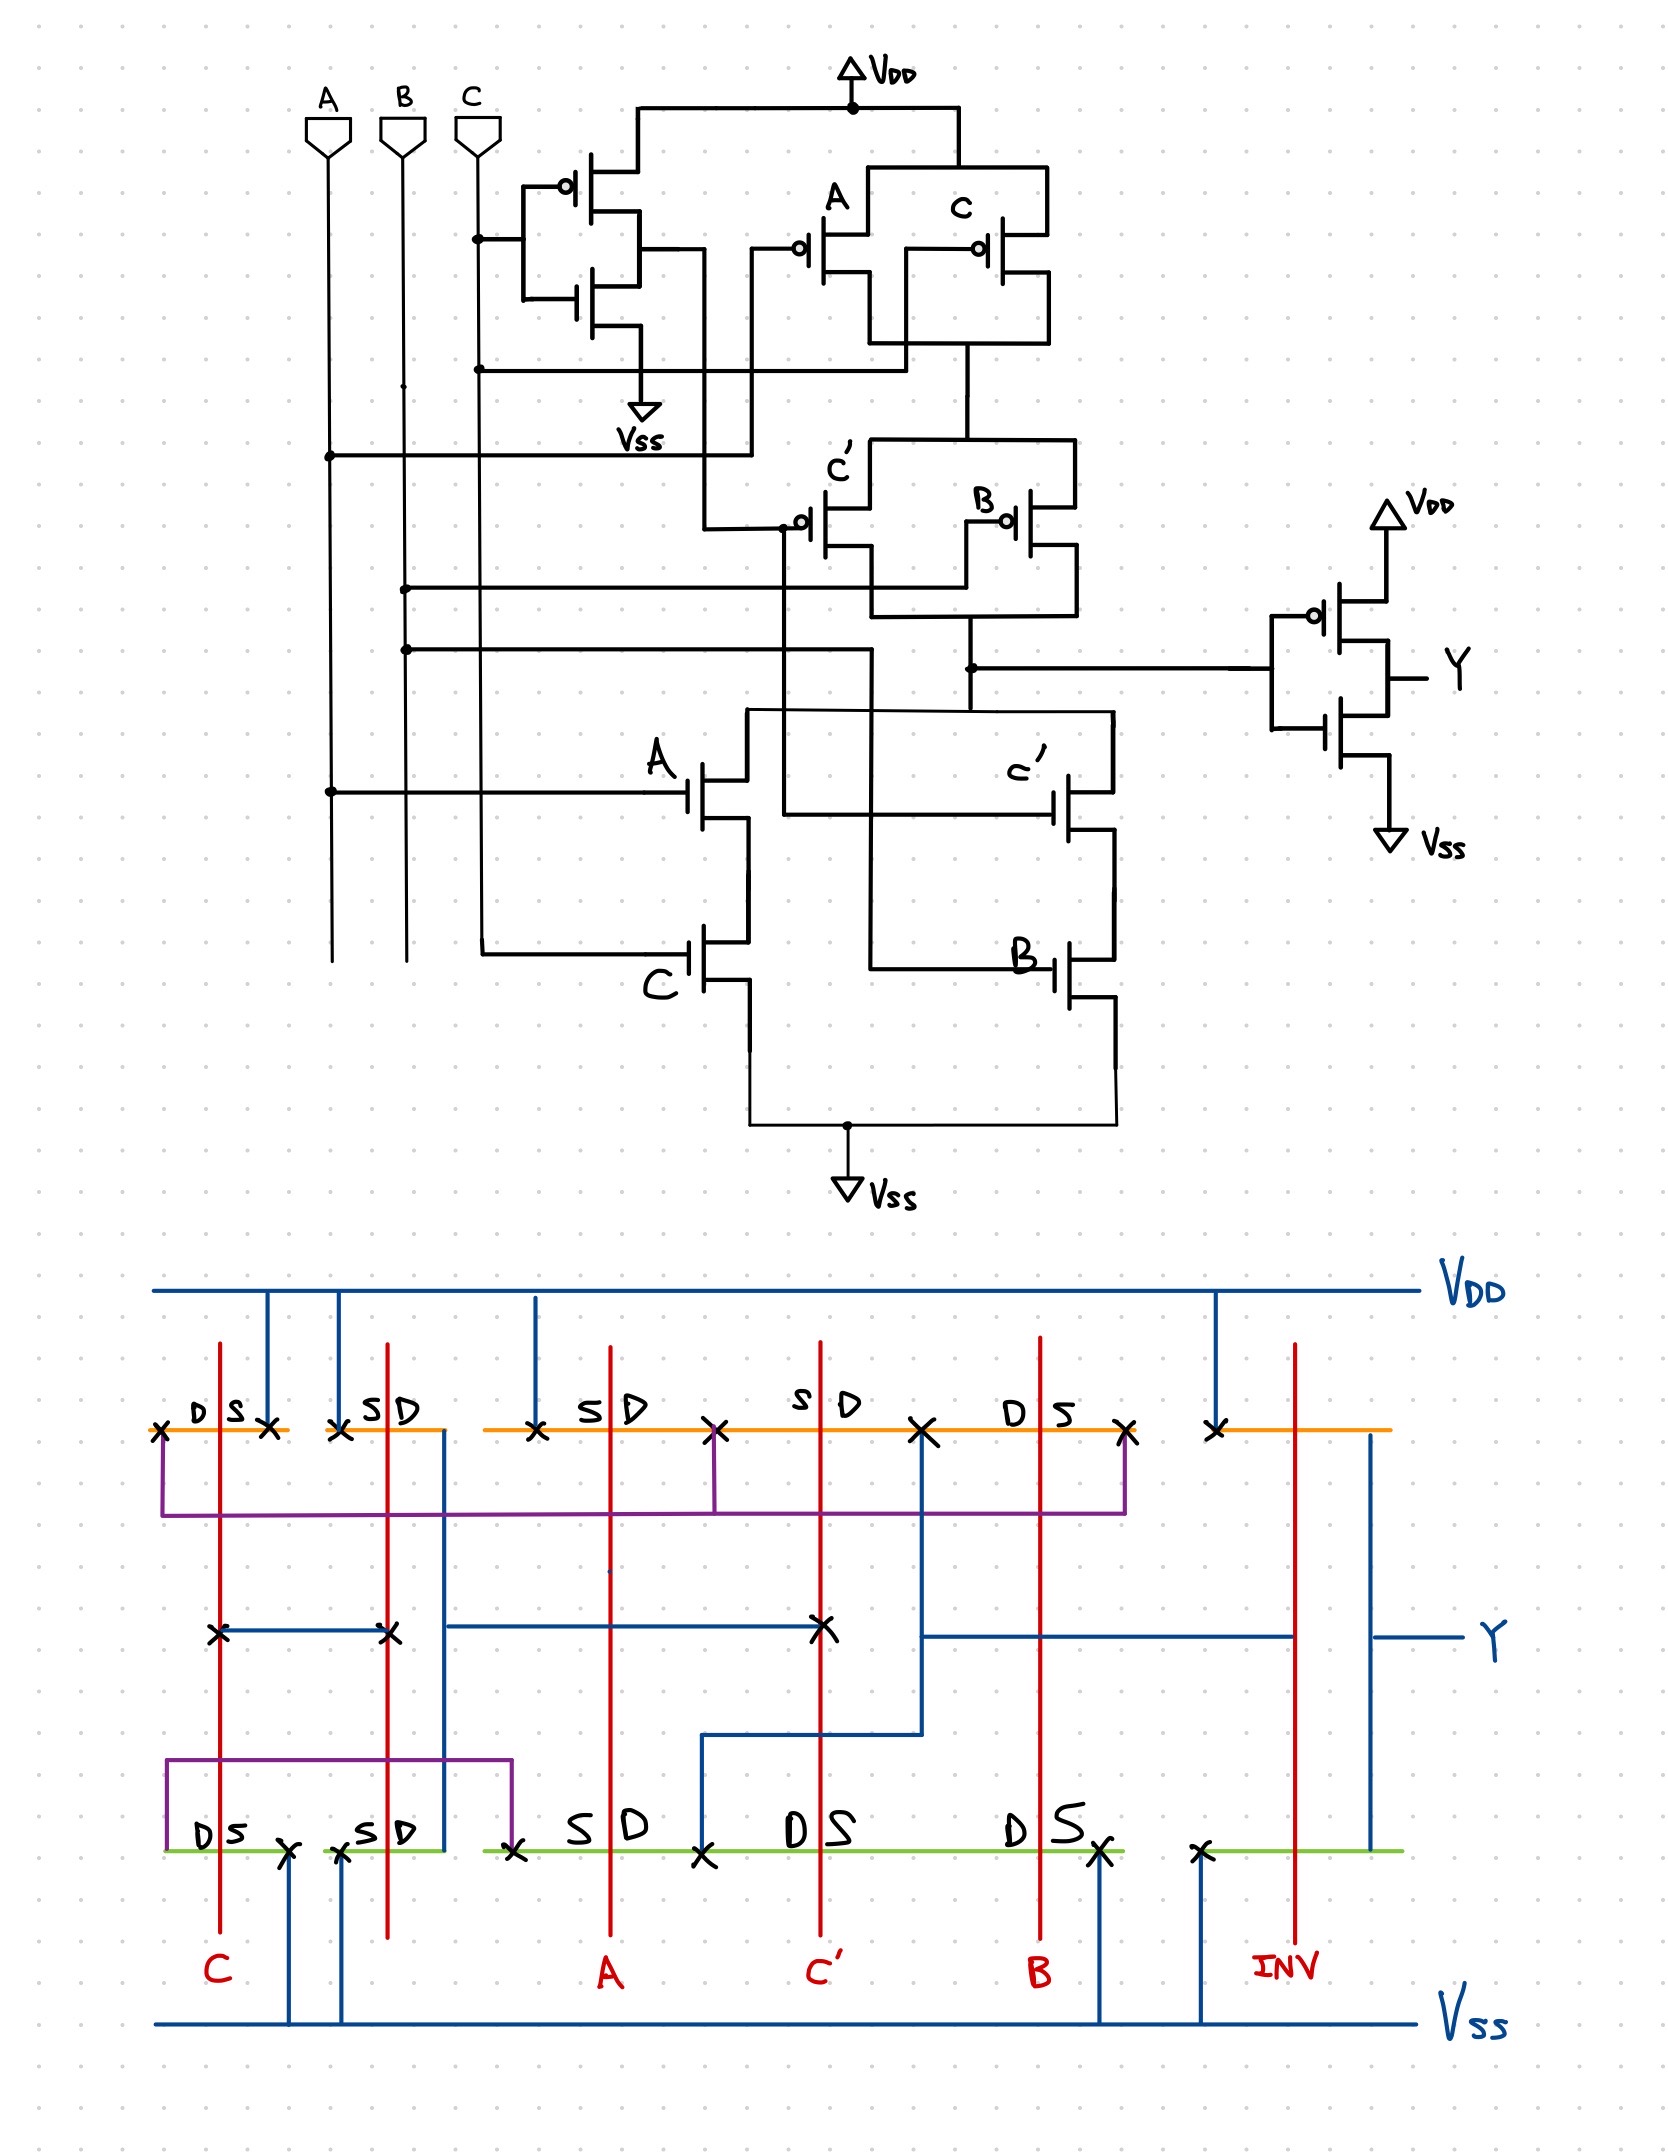 V_DD
A B C
A C
V_SS
C'
B
V_DD
Y
A
C'
V_SS
B
C
V_SS
V_DD
D S S D S D S D D S
Y
D S S D S D D S D S
C A C' B INV
V_SS